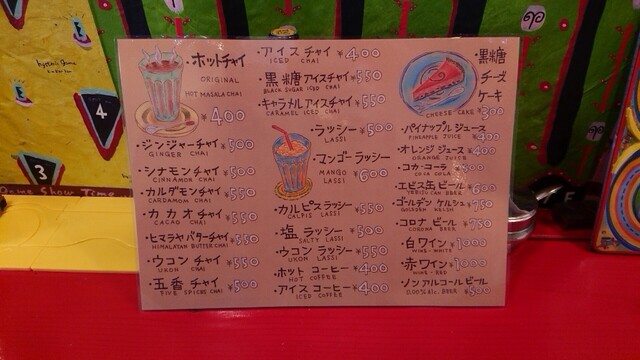 ・ホットチャイ
ORIGINAL
HOT MASALA CHAI
¥400
・ジンジャーチャイ ¥500
GINGER CHAI
・シナモンチャイ ¥500
CINNAMON CHAI
・カルダモンチャイ ¥550
CARDAMOM CHAI
・カカオチャイ ¥550
CACAO CHAI
・ヒマラヤバターチャイ ¥550
HIMALAYAN BUTTER CHAI
・ウコンチャイ ¥550
UKON CHAI
・五香チャイ ¥500
FIVE SPICES CHAI
・アイスチャイ ¥400
ICED CHAI
・黒糖アイスチャイ ¥550
BLACK SUGAR ICED CHAI
・キャラメルアイスチャイ ¥550
CARAMEL ICED CHAI
・ラッシー ¥500
LASSI
・マンゴーラッシー
MANGO LASSI ¥600
・カルピスラッシー ¥550
CALPIS LASSI
・塩ラッシー ¥500
SALTY LASSI
・ウコンラッシー ¥550
UKON LASSI
・ホットコーヒー ¥400
HOT COFFEE
・アイスコーヒー ¥400
ICED COFFEE
・黒糖
チーズ
ケーキ
CHEESE CAKE ¥300
・パイナップルジュース
PINEAPPLE JUICE ¥400
・オレンジジュース ¥400
ORANGE JUICE
・コカ・コーラ
COCA COLA
・エビス缶ビール ¥600
YEBISU CAN BEER
・ゴールデン
・コロナビール ¥750
CORONA BEER
・白ワイン ¥1000
WINE・WHITE
・赤ワイン ¥1000
WINE・RED
・ノンアルコールビール
0.00% ALC. BEER ¥500
4
3
Dome Show Time